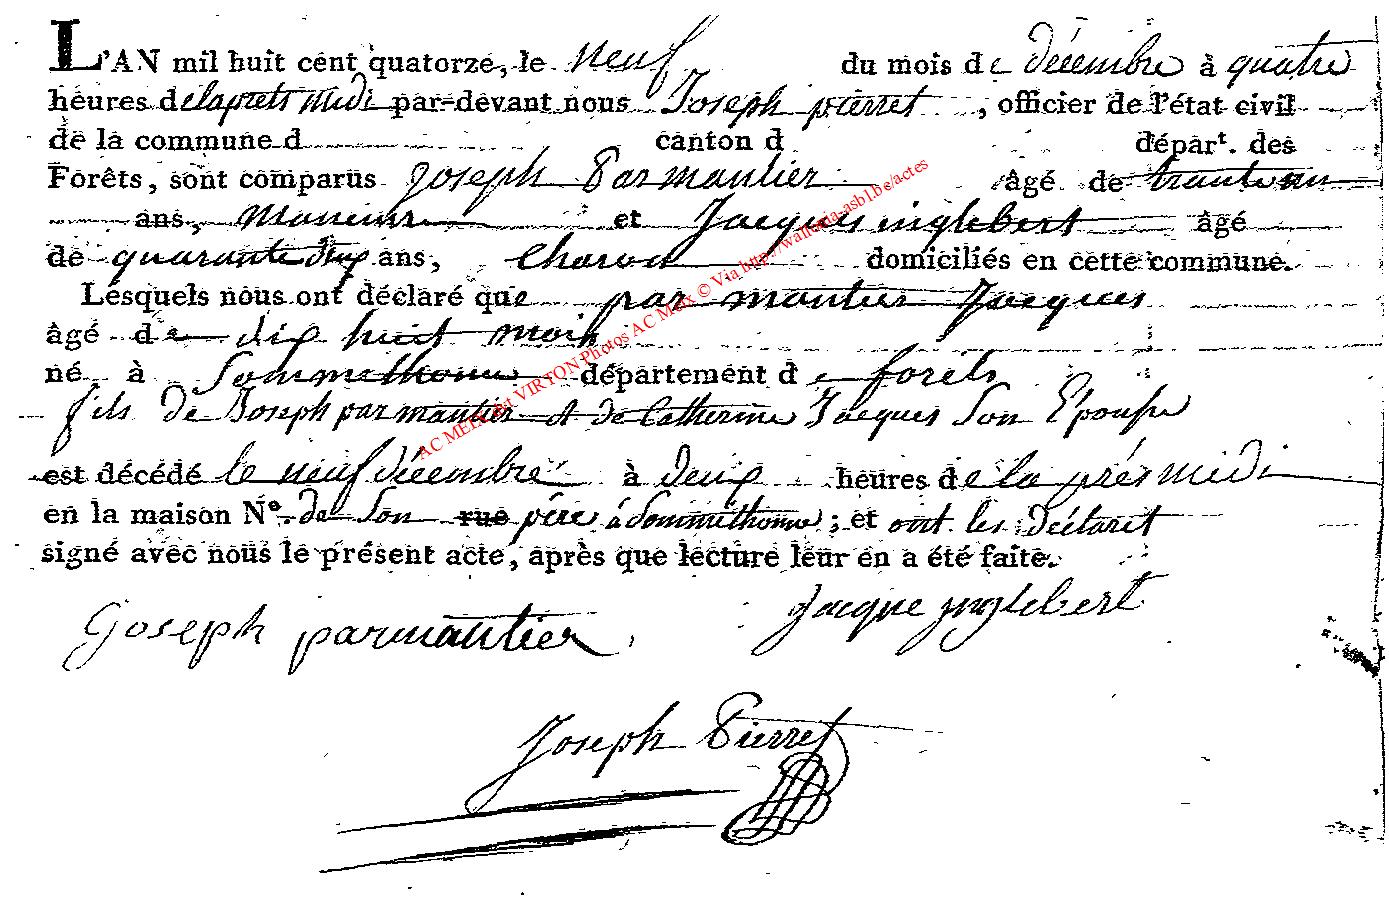 L'AN mil huit cent quatorze, le neuf du mois de décembre à quatre
heures de laprets midi par-devant nous Joseph pierret, officier de l'état civil
de la commune d canton d départ. des
Forêts, sont comparus joseph Parmantier âgé de trante un
ans, Maneuvre et Jacques inglebert âgé
de quarante deux ans, charon domiciliés en cette commune.
Lesquels nous ont déclaré que par mantier Jacques
âgé de dix huit mois
né à Sommethonne département de forêts
fils de Joseph parmantier et de Catherine Jacques Son Epouse
est décédé le neuf décembre à deux heures de la prés midi
en la maison N°. de Son rue pére à Sommethonne; et ont les déclaret
signé avec nous le présent acte, après que lecture leur en a été faite.
Joseph parmantier
Jacque jnglebert
Joseph Pierret
AC MEIX det VIRTON Photos AC Meix © Via http://wallonia-asbl.be/actes